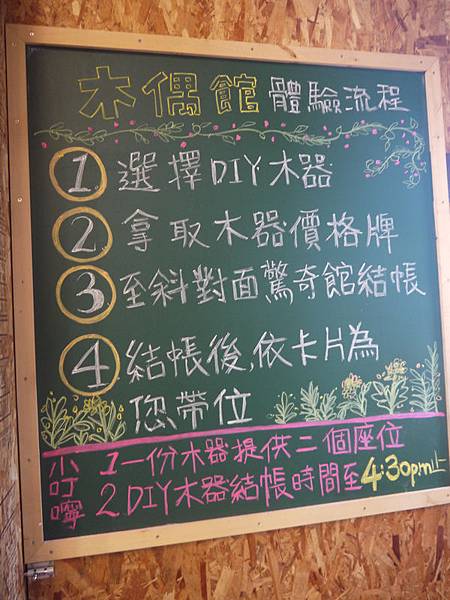 木偶館 體驗流程
1 選擇DIY木器
2 拿取木器價格牌
3 至斜對面驚奇館結帳
4 結帳後,依卡片為
您帶位
小叮嚀
1 一份木器提供二個座位
2 DIY木器結帳時間至4:30pm止